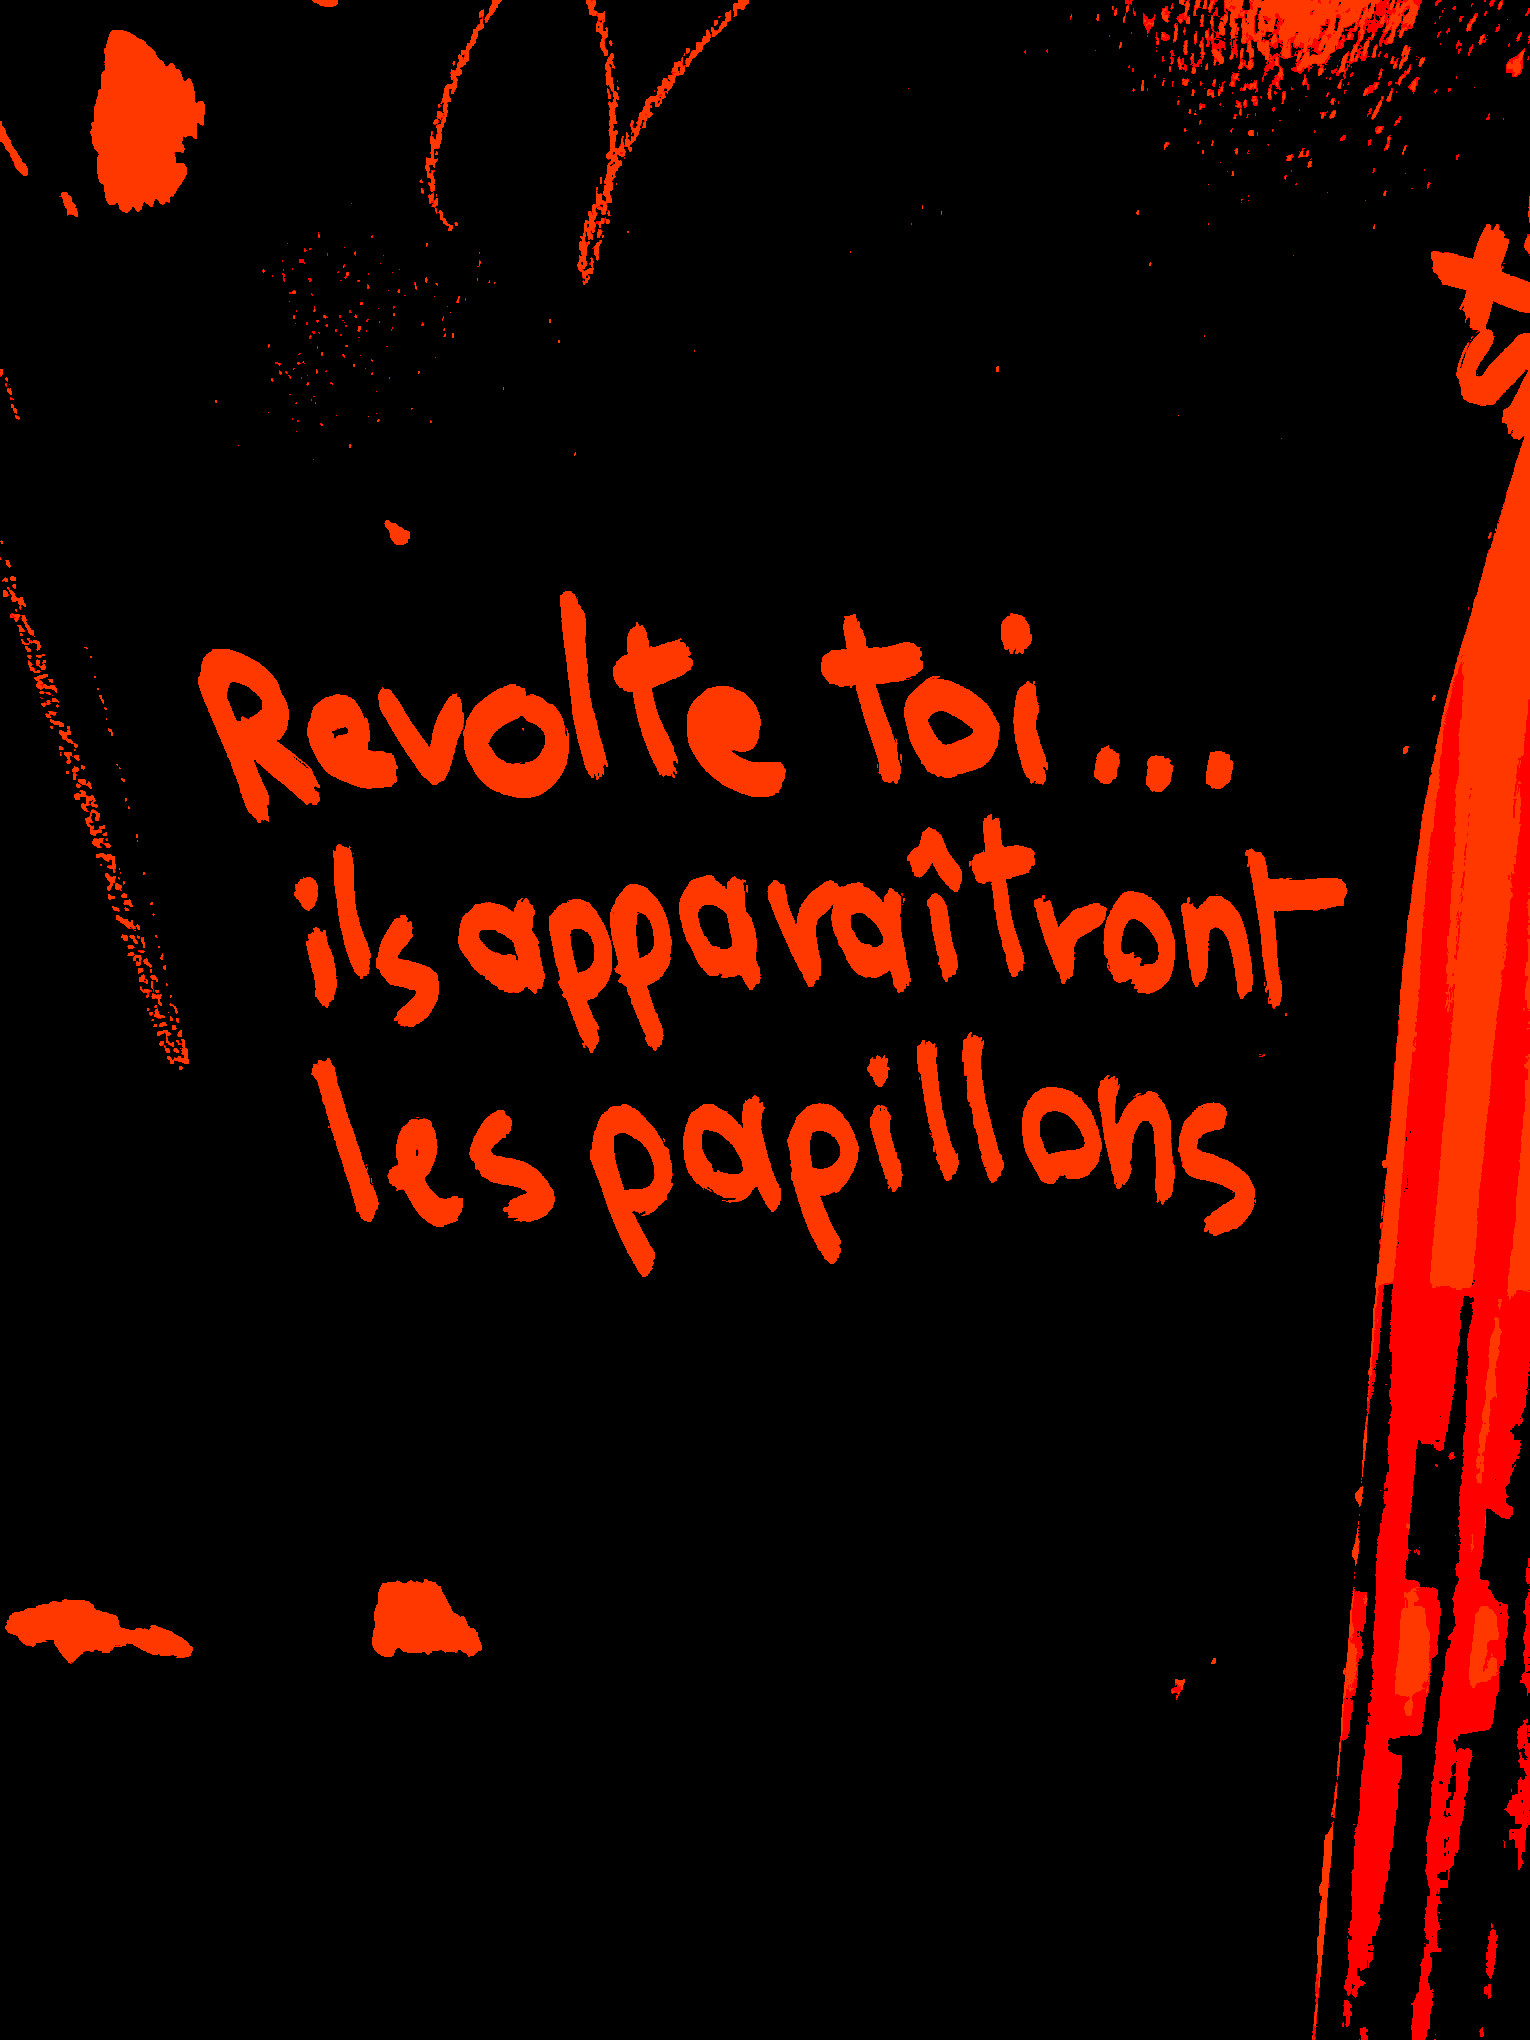 Revolte toi...
ils apparaîtront
les papillons